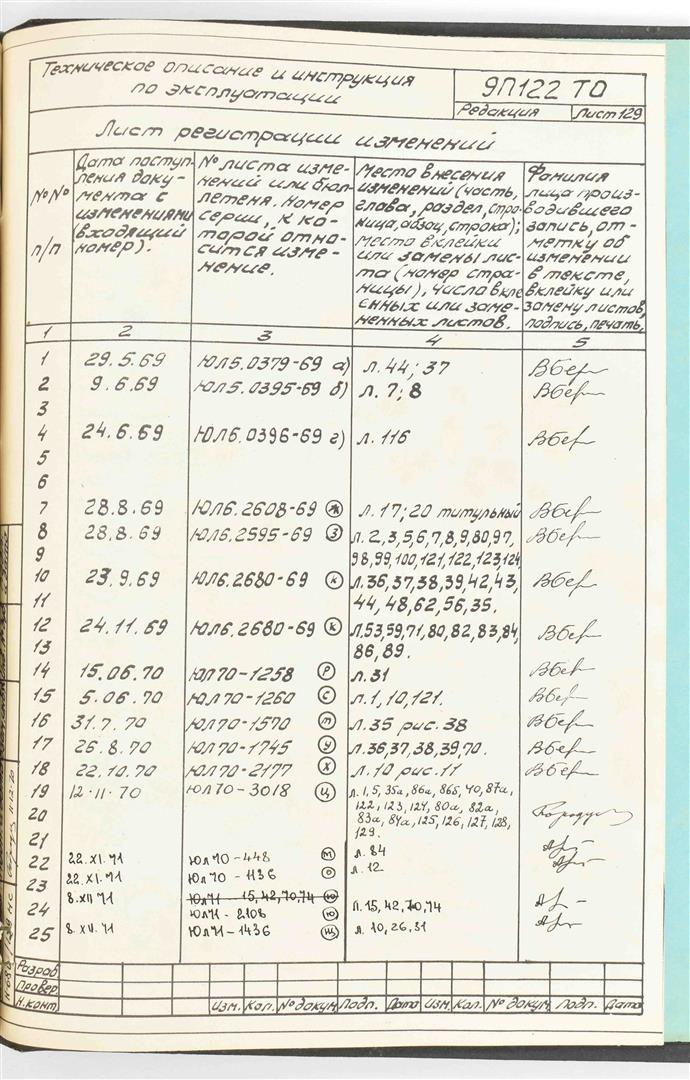 Техническое описание и инструкция
по эксплуатации
9П122 ТО
Редакция Лист 129
Лист регистрации изменений
№№
п/п
Дата поступ-
ления доку-
мента с
изменениями
(входящий
номер).
№ листа изме-
нений или бюл-
летеня. Номер
серии, к ко-
торой отно-
сится изме-
нение.
Место внесения
изменений (часть,
глава, раздел, стра-
ница, абзац, строка);
место вклейки
или замены лис-
та (номер стра-
ницы), число вкле
енных или заме-
ненных листов.
Фамилия
лица произ-
водившего
запись, от-
метку об
изменении
в тексте,
вклейку или
замену листов,
подпись, печать.
1 2 3 4 5
1 29.5.69 ЮЛ5.0379-69 а) л. 44; 37
2 9.6.69 ЮЛ5.0395-69 б) л. 7; 8
3
4 24.6.69 ЮЛ6.0396-69 г) л. 116
5
6
7 28.8.69 ЮЛ6.2608-69 ж л. 17; 20 титульный
8 28.8.69 ЮЛ6.2595-69 З л. 2,3,5,6,7,8,9,80,97,
9 98,99,100,121,122,123,124
10 23.9.69 ЮЛ6.2680-69 к л.36,37,38,39,42,43,
11 44, 48,62,56,35.
12 24.11.69 ЮЛ6.2680-69 к л.53,59,71,80,82,83,84,
13 86,89.
14 15.06.70 ЮЛ70-1258 Р л.31
15 5.06.70 ЮЛ70-1260 С л.1,10,121.
16 31.7.70 ЮЛ70-1570 т л.35 рис.38
17 26.8.70 ЮЛ70-1745 У л.36,37,38,39,70.
18 22.10.70 ЮЛ70-2177 Х л.10 рис.11
19 12.11.70 ЮЛ70-3018 Ц л.1,5,35а,86а,86б,40,87а,
20 122,123,124,80а,82а,
83а,84а,125,126,127,128,
21 129.
22 22.XI.71 ЮЛ70-448 М л.84
22.XI.71 ЮЛ70-1136 О л.12
23
8.XII.71 ЮЛ71-15,42,70,74 Ю л.15,42,70,74
24 ЮЛ71-2108 Ю
25 8.XII.71 ЮЛ71-1436 Щ л.10,26,31
Разраб
Провер
Н.конт
Изм. Кол. № докум. Подп. Дата Изм. Кол. № докум. Подп. Дата